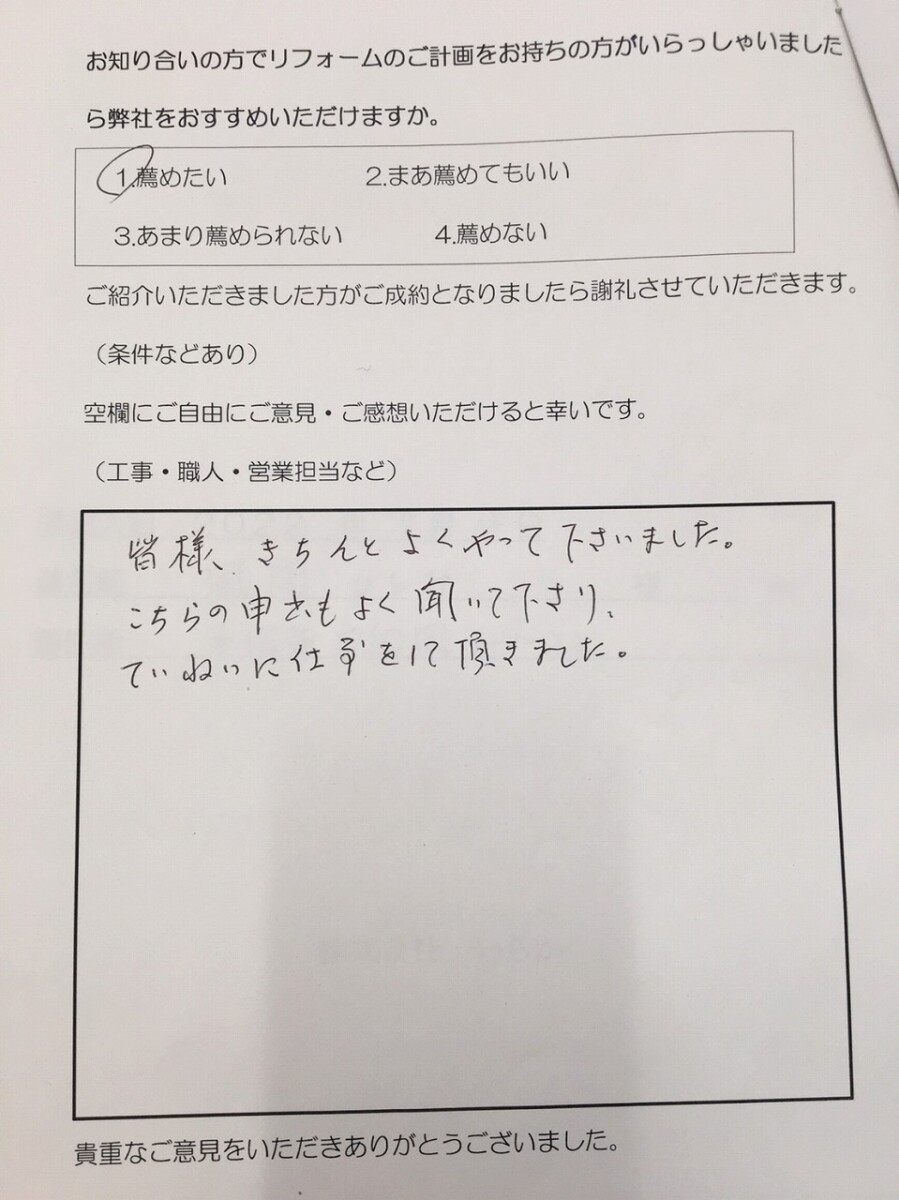 お知り合いの方でリフォームのご計画をお持ちの方がいらっしゃいました
ら弊社をおすすめいただけますか。
1.薦めたい 2.まあ薦めてもいい
3.あまり薦められない 4.薦めない
ご紹介いただきました方がご成約となりましたら謝礼させていただきます。
（条件などあり）
空欄にご自由にご意見・ご感想いただけると幸いです。
（工事・職人・営業担当など）
皆様、きちんとよくやって下さいました。
こちらの申出もよく聞いて下さり、
ていねいに仕事をして頂きました。
貴重なご意見をいただきありがとうございました。